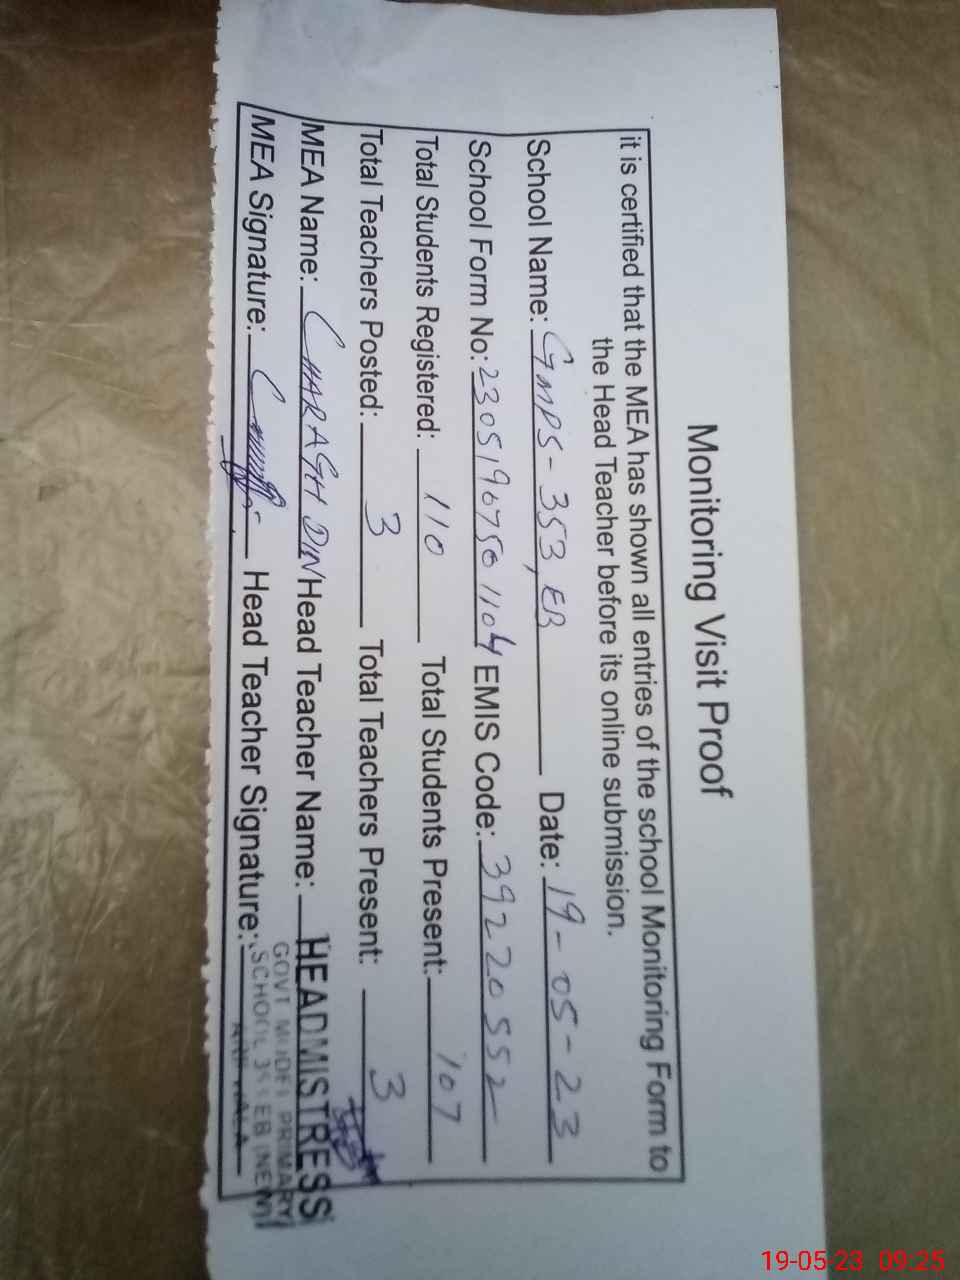 Monitoring Visit Proof
it is certified that the MEA has shown all entries of the school Monitoring Form to
the Head Teacher before its online submission.
School Name: GMPS-353, EB Date: 19-05-23
School Form No: 2305196750 1104 EMIS Code: 39220552
Total Students Registered: 110 Total Students Present: 107
Total Teachers Posted: 3 Total Teachers Present: 3
MEA Name: CHARAGH DIN Head Teacher Name: HEADMISTRESS
GOVT MODEL PRIMARY
MEA Signature: Head Teacher Signature: SCHOOL 353 EB (NEW)
19-05-23 09:25